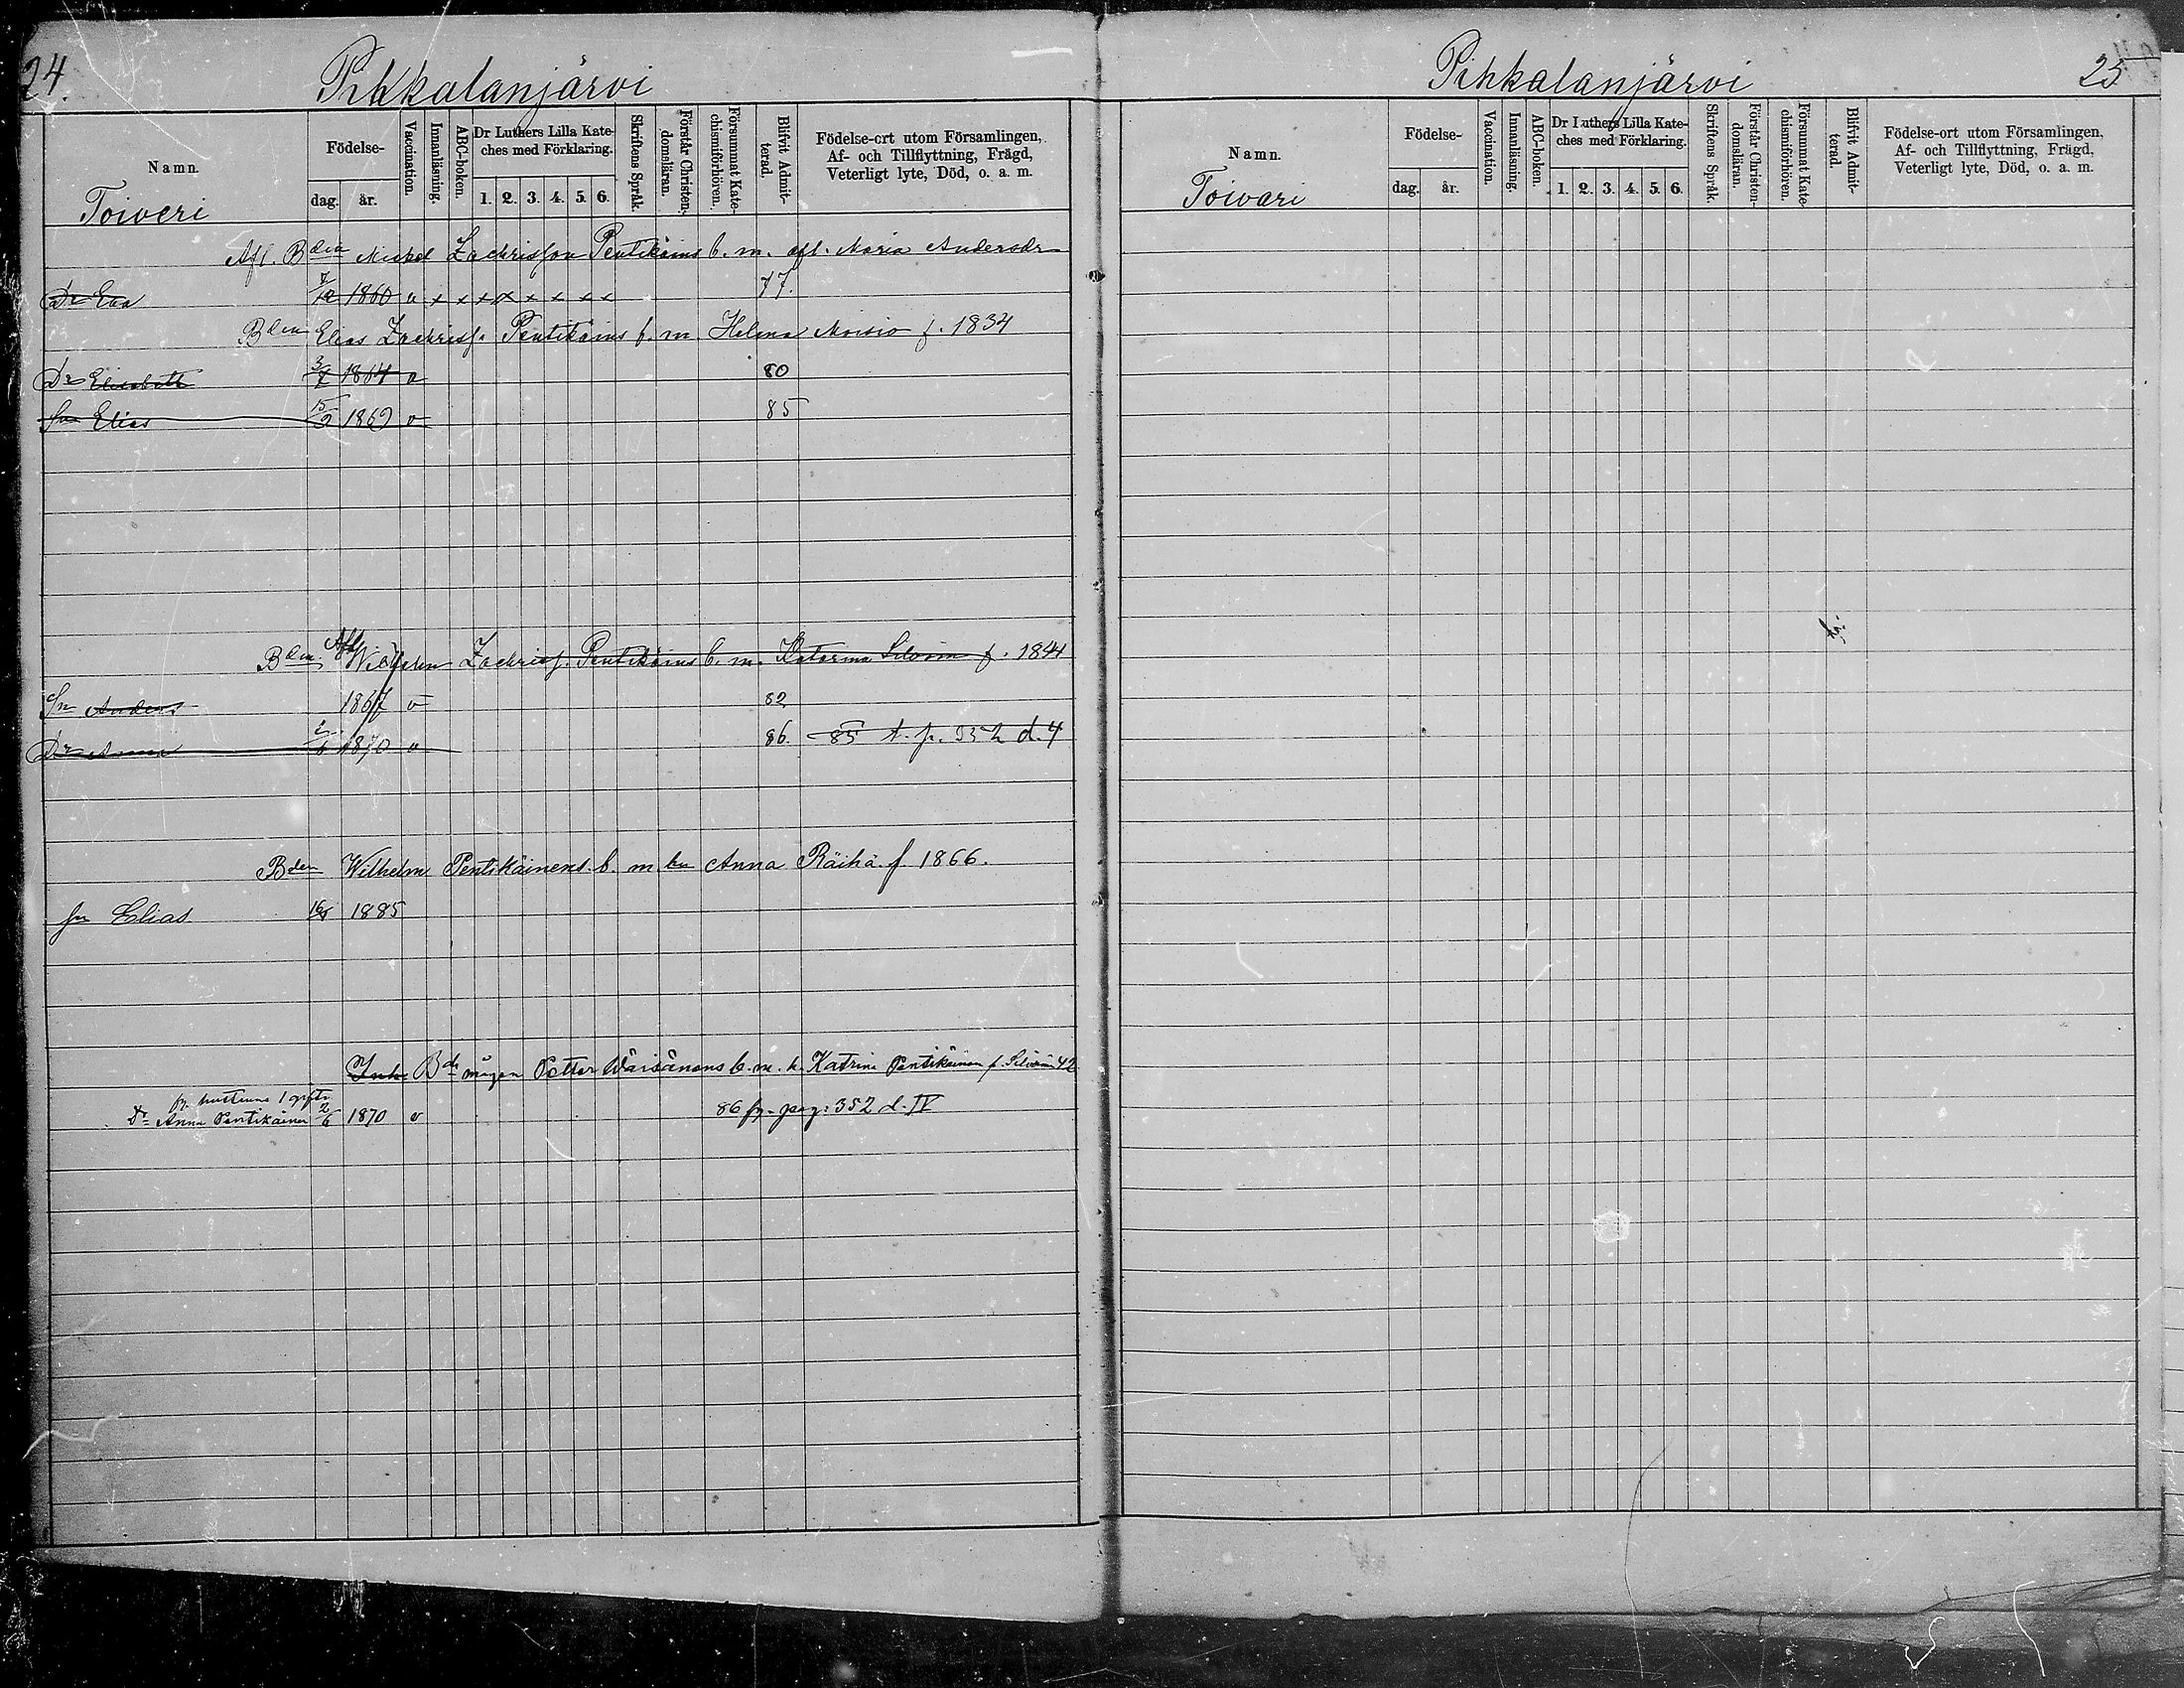 24.
Pihkalanjärvi
Namn.
Födelse-
dag.
år.
Vaccination.
Innanläsning.
ABC-boken.
Dr Luthers Lilla Kate-
ches med Förklaring.
1. 2. 3. 4. 5. 6.
Skriftens Språk.
Förstår Christen-
domsläran.
Försummat Kate-
chismiförhören.
Blifvit Admit-
terad.
Födelse-ort utom Församlingen,
Af- och Tillflyttning, Frägd,
Veterligt lyte, Död, o. a. m.
Toiveri
Afl. Bden Mickel Zachrisson Pentikäins b. m. afl. Maria Andersdr
Dr Eva 1860 v x x x x x x x x 77.
Bden Elias Zachriss. Pentikäins b. m. Helena Moisio f. 1834
Dr Elisabeth 3/7 1864 v 80
Sn Elias 15/2 1869 v 85
Bden Afl Wilhelm Zachriss. Pentikäins b. m. Katarina Silvoin f. 1841
Sn Anders 1867 v 82
Dr Anna 2/6 1870 v 86. 85 t. p. 352 d. 4
Bden Wilhelm Pentikäinens b. m. hu Anna Räihä f 1866.
sn Elias 16/5 1885
Inh Bde mågen Petter Wäisänens b. m. h. Katrina Pentikäinen f. Silvoin 42
fr. hustruns 1 gifte
Dr Anna Pentikäinen 2/6 1870 v 86 fr. pag: 352 d. IV
Pihkalanjärvi
25
Namn.
Födelse-
dag.
år.
Vaccination.
Innanläsning.
ABC-boken.
Dr Luthers Lilla Kate-
ches med Förklaring.
1. 2. 3. 4. 5. 6.
Skriftens Språk.
Förstår Christen-
domsläran.
Försummat Kate-
chismiförhören.
Blifvit Admit-
terad.
Födelse-ort utom Församlingen,
Af- och Tillflyttning, Frägd,
Veterligt lyte, Död, o. a. m.
Toivari